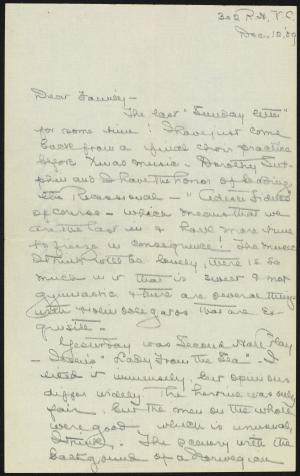 302 R.H., V.C.
Dec. 10, '09
Dear Family –
The last "Sunday letter"
for some time! I have just come
back from a final choir practice
before Xmas music – Dorothy
and I have the honor of leading
the Recessional – "Adeste Fideles"
of course – which means that we
are the last in & have more time
to freeze in consequence! The music
I think will be lovely, there is so
much in it that is sweet & not
gymnastic & there are several things
with violin obligatos that are ex-
quisite –
Yesterday was Second Hall Play
– Ibsen's "Lady From the Sea" – I
liked it immensely, but opinions
differ widely. The heroine was only
fair, but the men on the whole
were good which is unusual,
I think. The scenery with the
background of a Norwegian